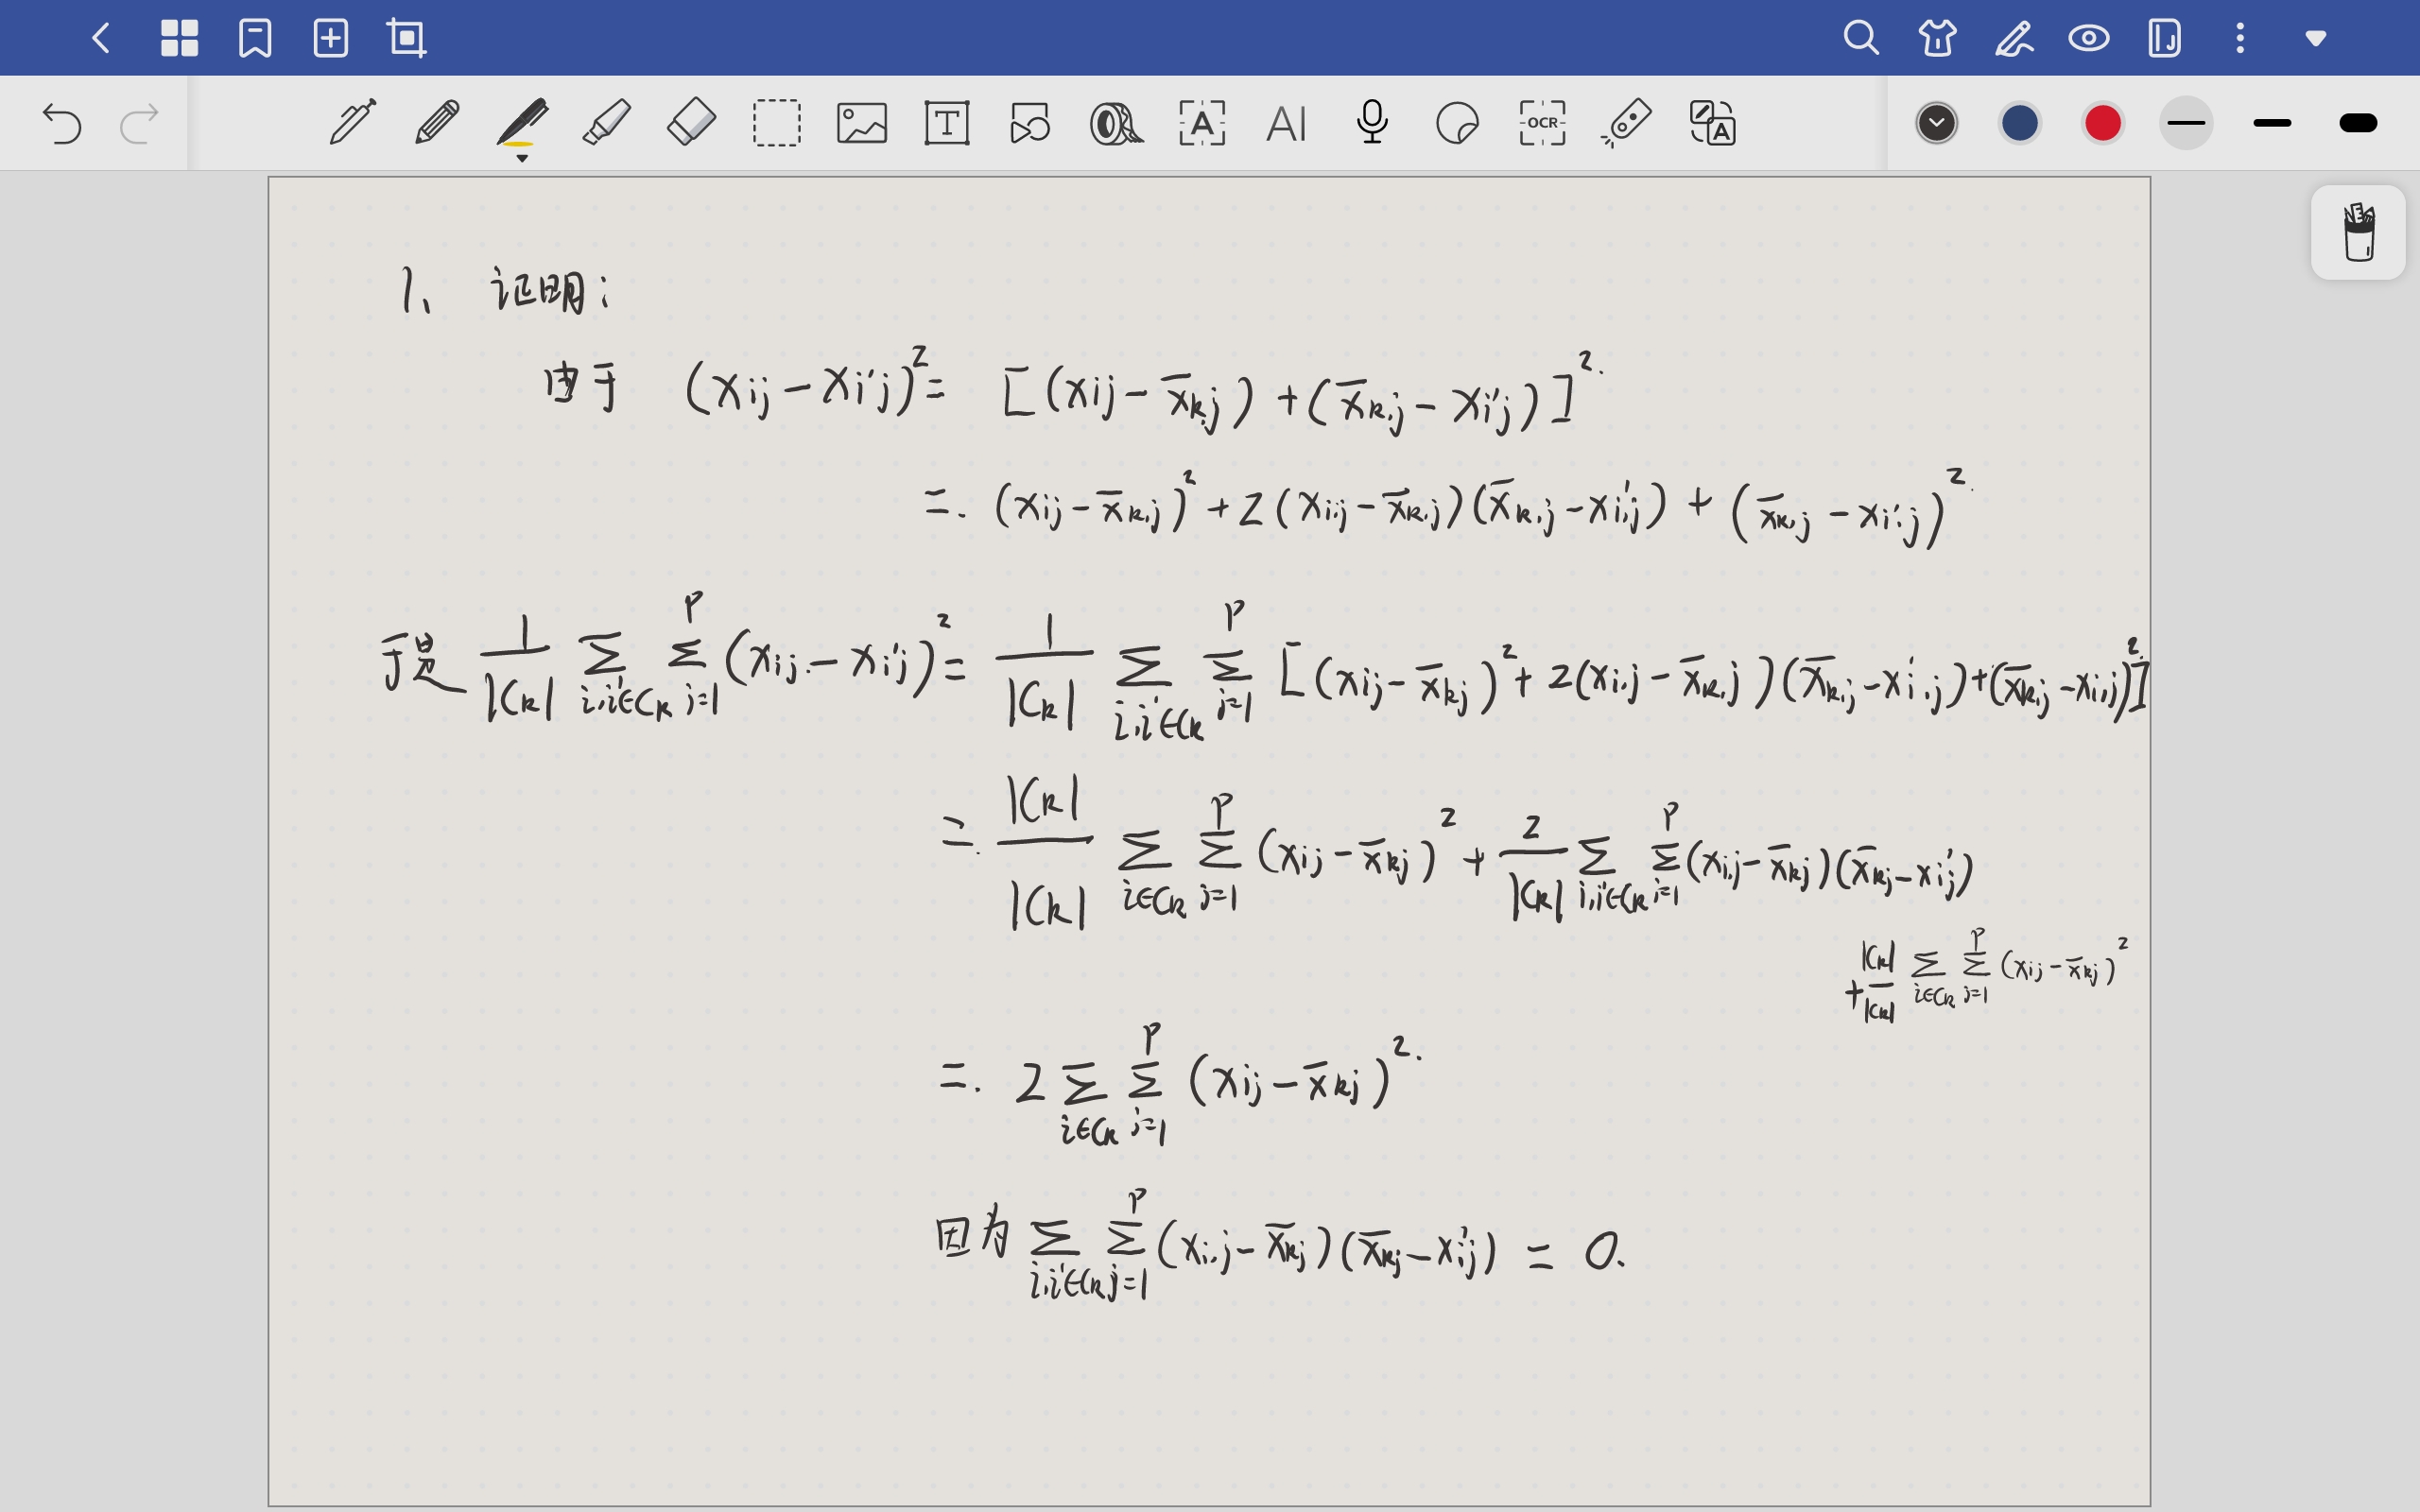 T
A
AI
OCR
A
1、 证明：
由于 (xij − xi'j)² = [(xij − x̄kj) + (x̄kj − xi'j)]².
=. (xij − x̄kj)² + 2(xij − x̄kj)(x̄kj − xi'j) + (x̄kj − xi'j)².
于是 1/|Ck| Σ_{i,i'∈Ck} Σ_{j=1}^{p} (xij − xi'j)² = 1/|Ck| Σ_{i,i'∈Ck} Σ_{j=1}^{p} [(xij − x̄kj)² + 2(xij − x̄kj)(x̄kj − xi'j) + (x̄kj − xi'j)²]
=. |Ck|/|Ck| Σ_{i∈Ck} Σ_{j=1}^{p} (xij − x̄kj)² + 2/|Ck| Σ_{i,i'∈Ck} Σ_{j=1}^{p} (xij − x̄kj)(x̄kj − xi'j)
+ |Ck|/|Ck| Σ_{i∈Ck} Σ_{j=1}^{p} (xij − x̄kj)²
=. 2 Σ_{i∈Ck} Σ_{j=1}^{p} (xij − x̄kj)².
因为 Σ_{i,i'∈Ck} Σ_{j=1}^{p} (xij − x̄kj)(x̄kj − xi'j) = 0.